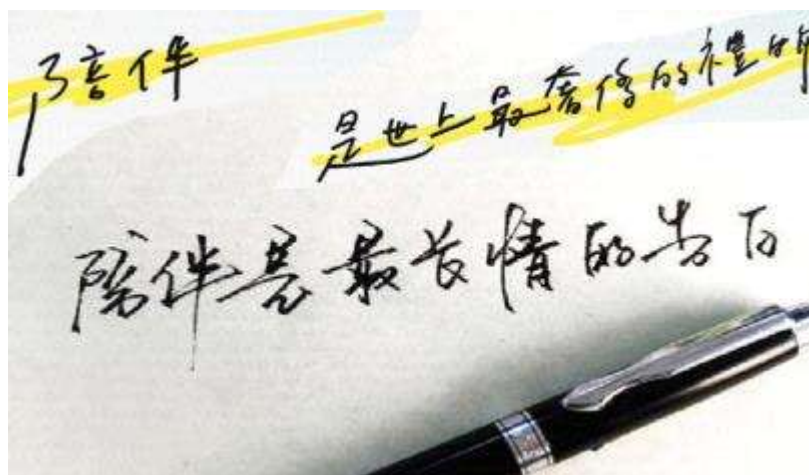 陪伴
是世上最奢侈的禮物
陪伴是最长情的告白